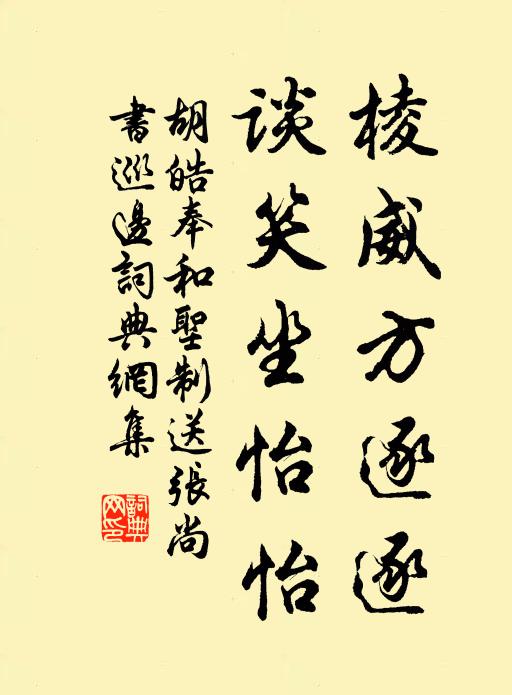 棱威方逐逐
谈笑坐怡怡
胡皓奉和聖制送張尚
書巡邊詞典網集
詞典网印